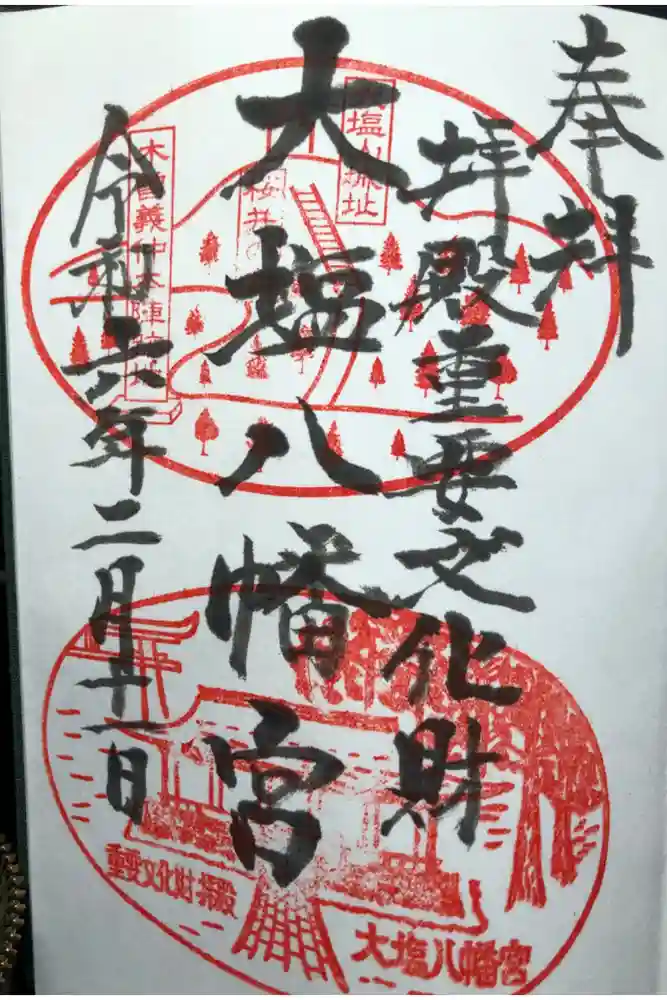 奉拝
拝殿重要文化財
大塩八幡宮
令和六年二月十一日
塩山城址
桜井の
木曽義仲本陣跡地
重要文化財拝殿
大塩八幡宮